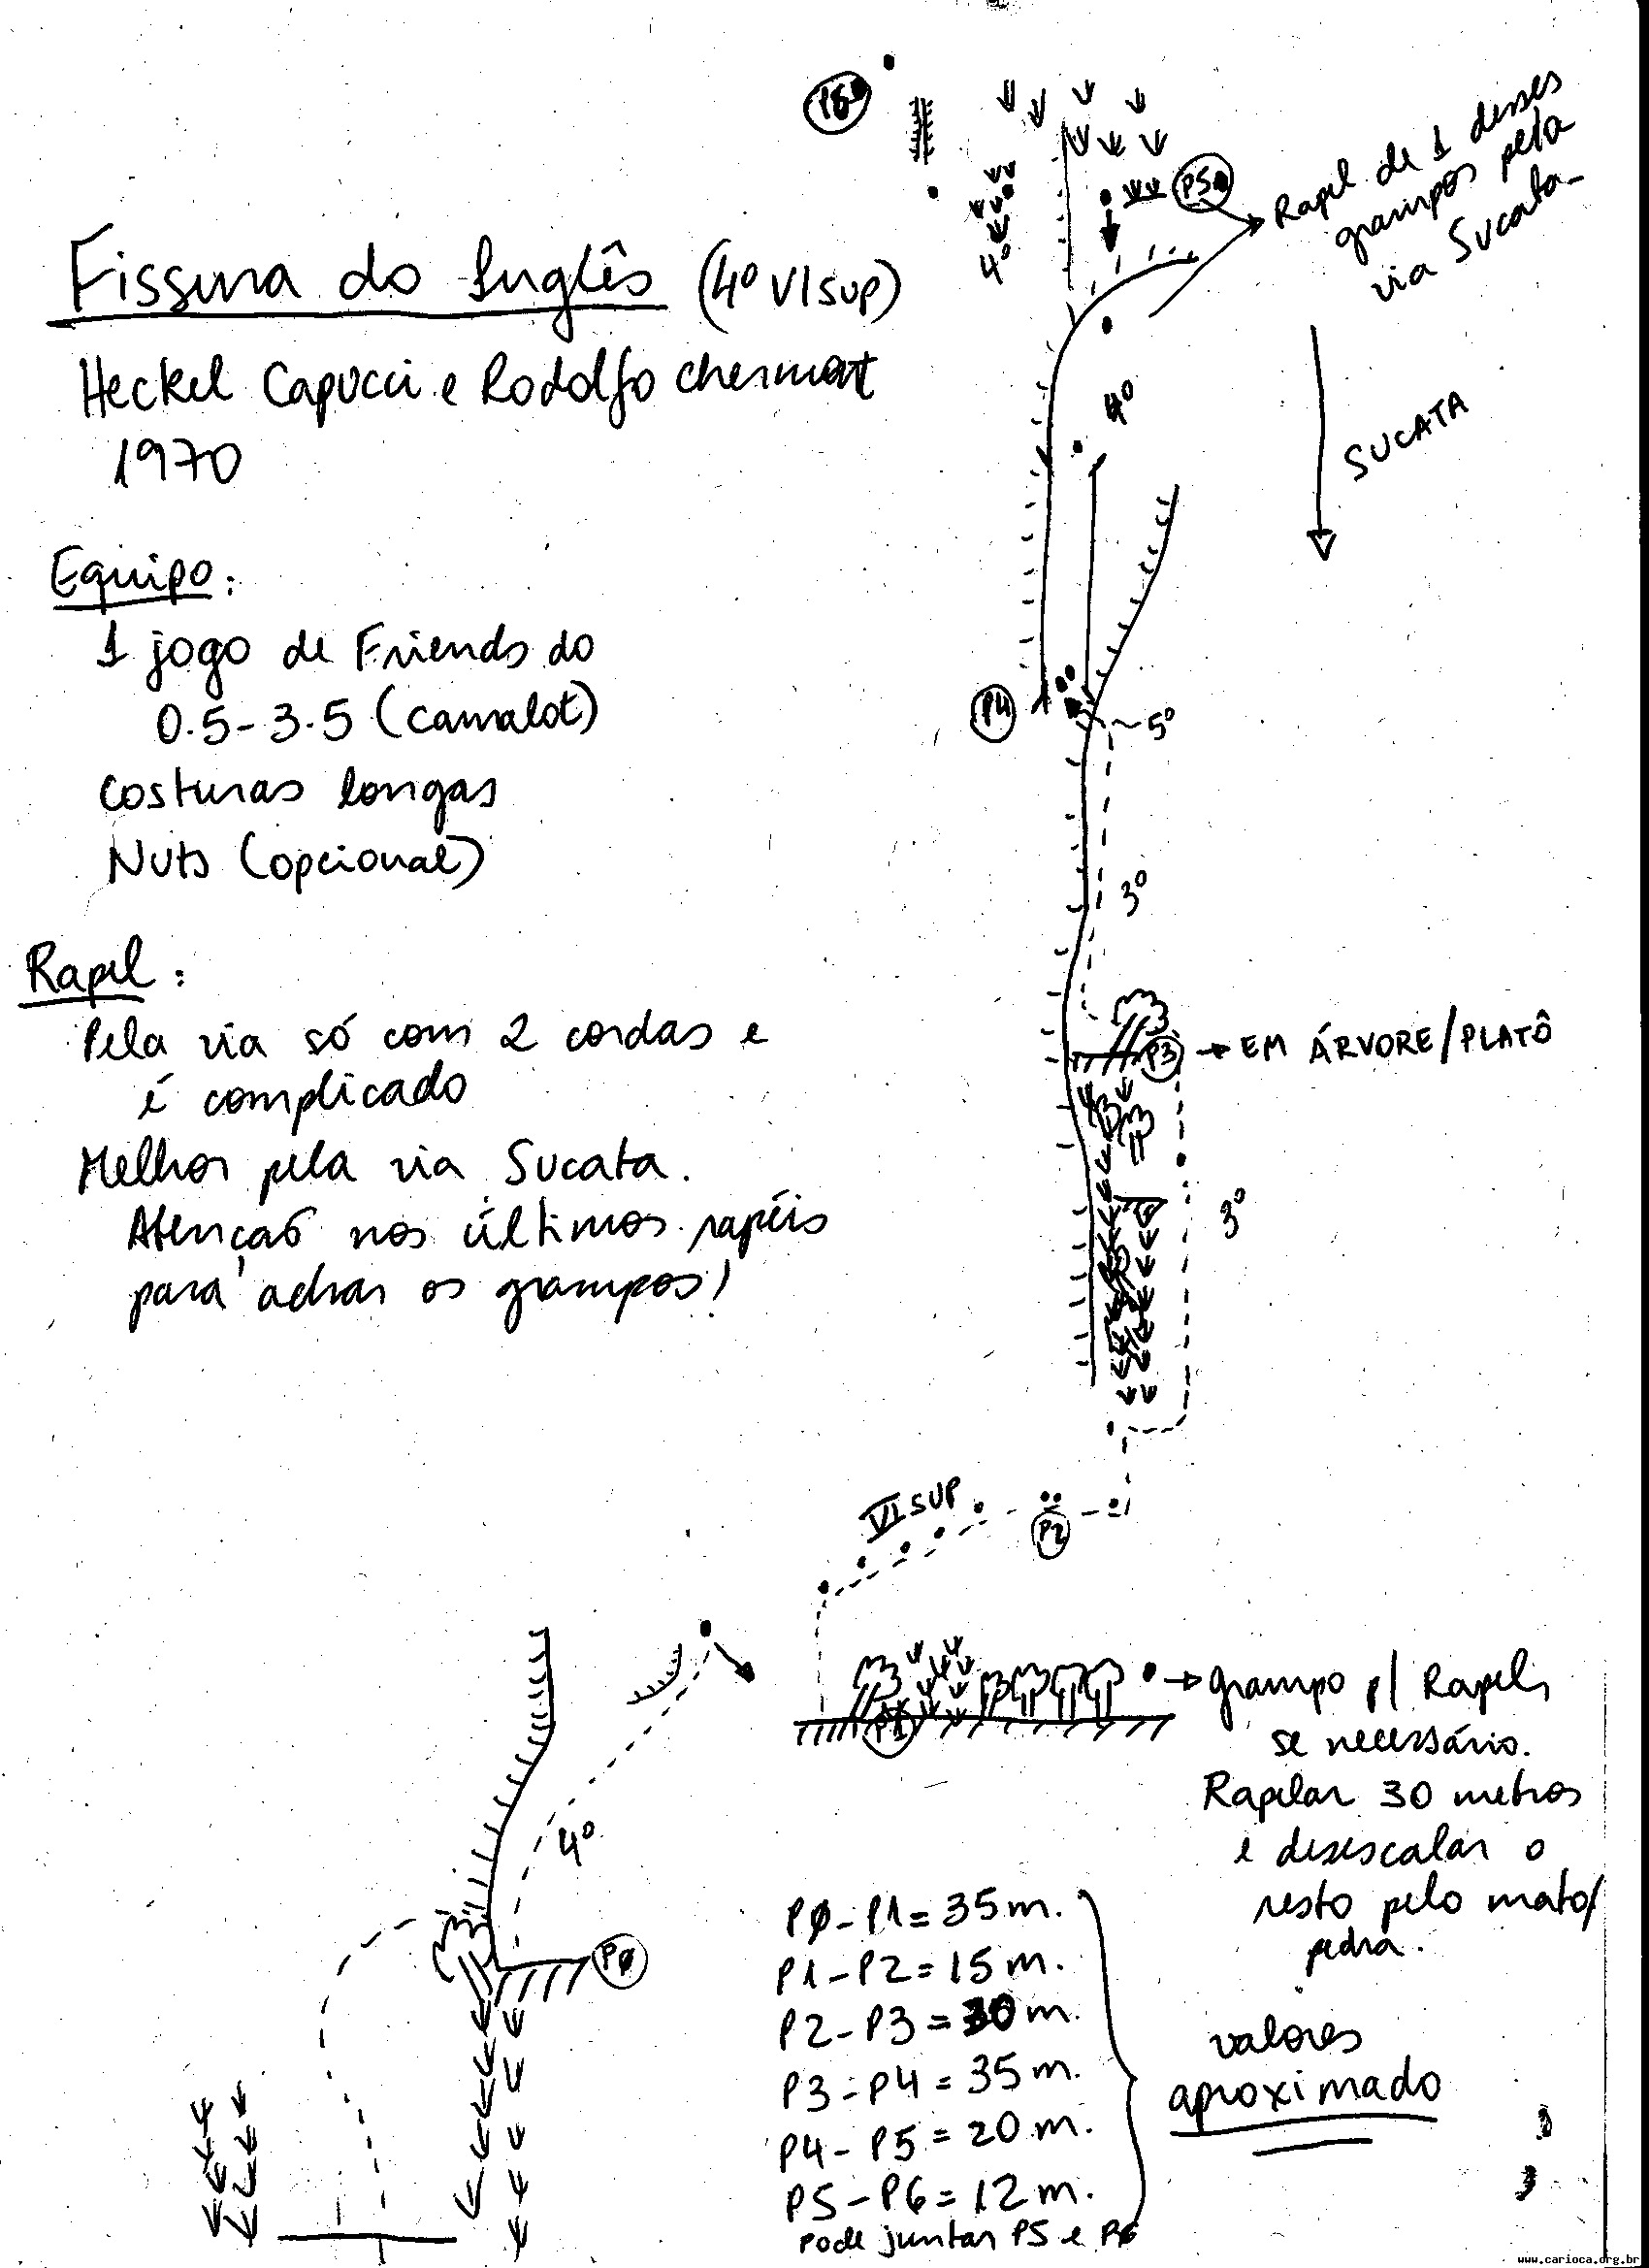 Fissura do Inglês (4º VIsup)
Heckel Capucci e Rodolfo Chermont
1970
Equipo:
1 jogo de Friends do
0.5-3.5 (camalot)
Costuras longas
Nuts (opcional)
Rapel:
Pela via só com 2 cordas e
é complicado
Melhor pela via Sucata.
Atenção nos últimos rapéis
para achar os grampos!
P6
P5
Rapel de 1 desses
grampos pela
via Sucata
4º
4º
SUCATA
P4
5º
3º
P3 → EM ÁRVORE/PLATÔ
3º
VI SUP
P2
P1
→ grampo p/ Rapel,
se necessário.
Rapelar 30 metros
e desescalar o
resto pelo mato/
pedra.
4º
PØ
PØ-P1=35m.
P1-P2=15m.
P2-P3=30m.
P3-P4=35m.
P4-P5=20m.
P5-P6=12m.
pode juntar P5 e P6
valores
aproximado
www.carioca.org.br